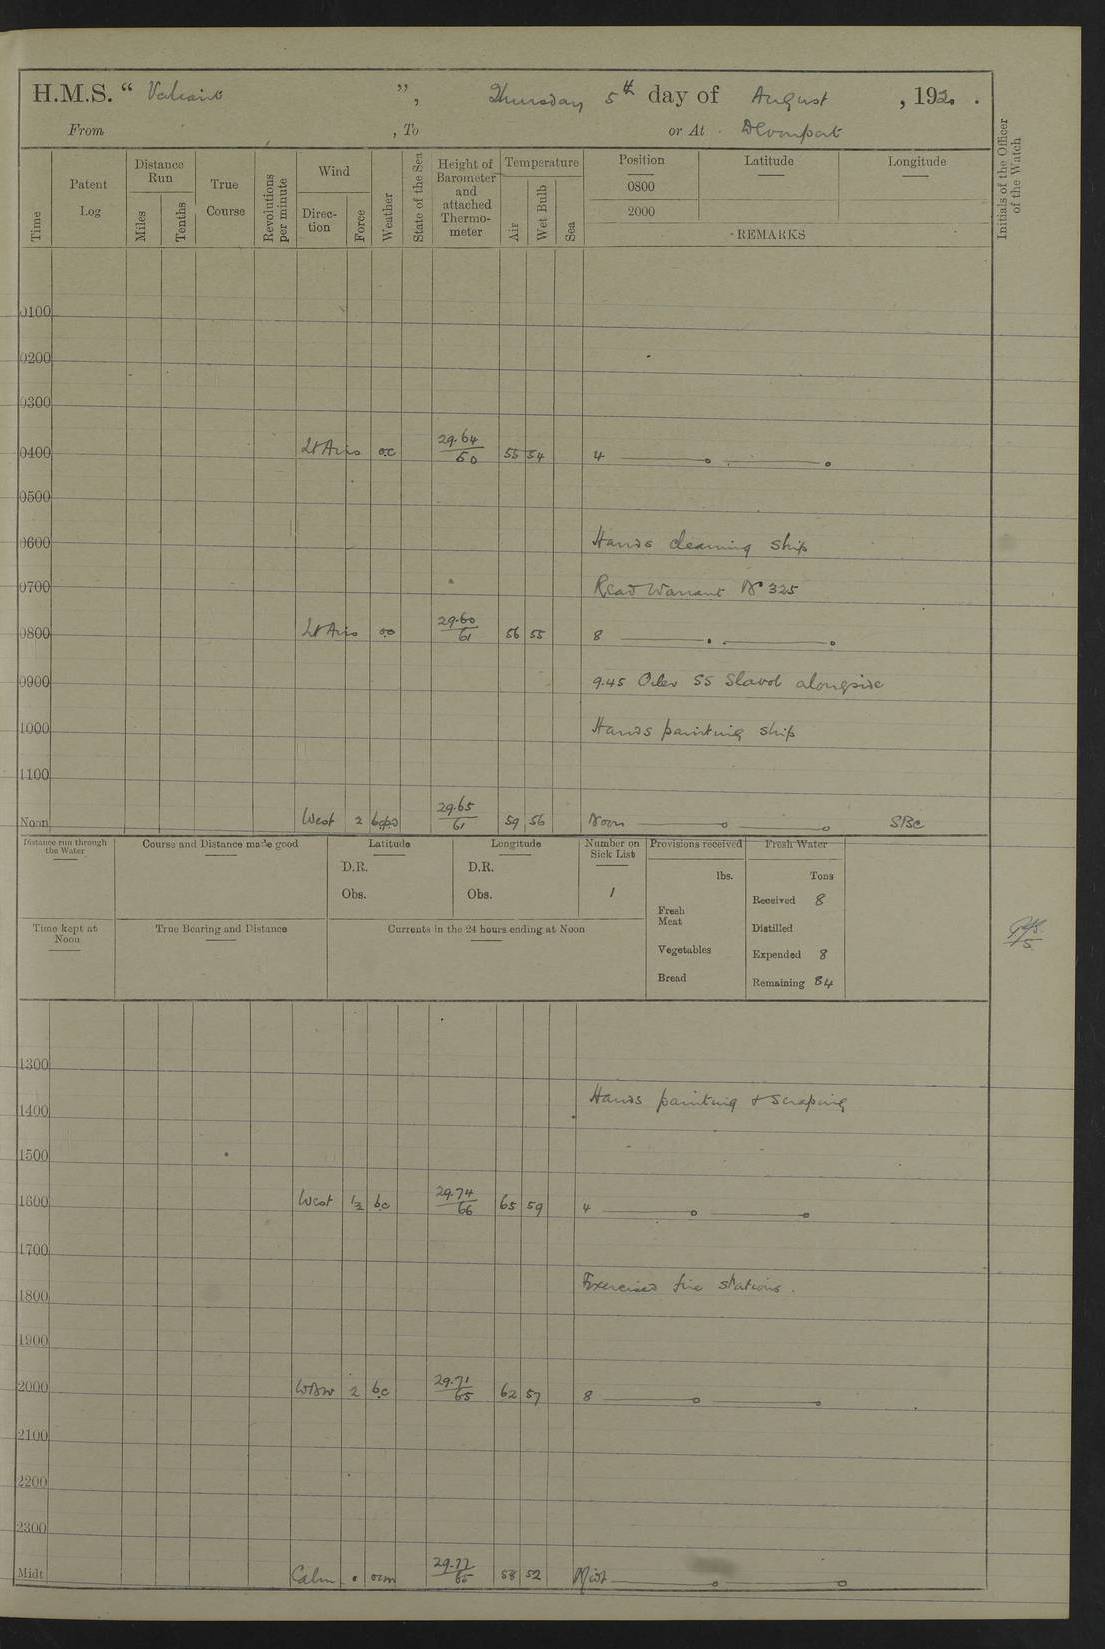 H.M.S. “ Valiant ”, Thursday 5th day of August, 1920.
From , To or At Devonport
Time
Patent Log
Distance Run
Miles
Tenths
True Course
Revolutions per minute
Wind
Direc-tion
Force
Weather
State of the Sea
Height of Barometer and attached Thermo-meter
Temperature
Air
Wet Bulb
Sea
Position
0800
2000
Latitude
Longitude
REMARKS
Initials of the Officer of the Watch
0100
0200
0300
0400 Lt Airs oc 29.64/60 55 54 4
0500
0600 Hands cleaning ship
0700 Read Warrant No 325
0800 Lt Airs oo 29.60/61 56 55 8
0900 9.45 Oiler SS Slavol alongside
1000 Hands painting ship
1100
Noon West 2 29.65/61 59 56 Noon
Distance run through the Water
Course and Distance made good
Latitude
D.R.
Obs.
Longitude
D.R.
Obs.
Number on Sick List
1
Provisions received
lbs.
Fresh Meat
Vegetables
Bread
Fresh Water
Tons
Received 8
Distilled
Expended 8
Remaining 84
Time kept at Noon
True Bearing and Distance
Currents in the 24 hours ending at Noon
1300
1400 Hands painting & scraping
1500
1600 West 1/2 bc 29.74/66 65 59 4
1700
1800 Exercised fire stations.
1900
2000 WNW 2 bc 29.71/65 62 57 8
2100
2200
2300
Midt Calm 0 ocm 29.77/65 58 52 Midt